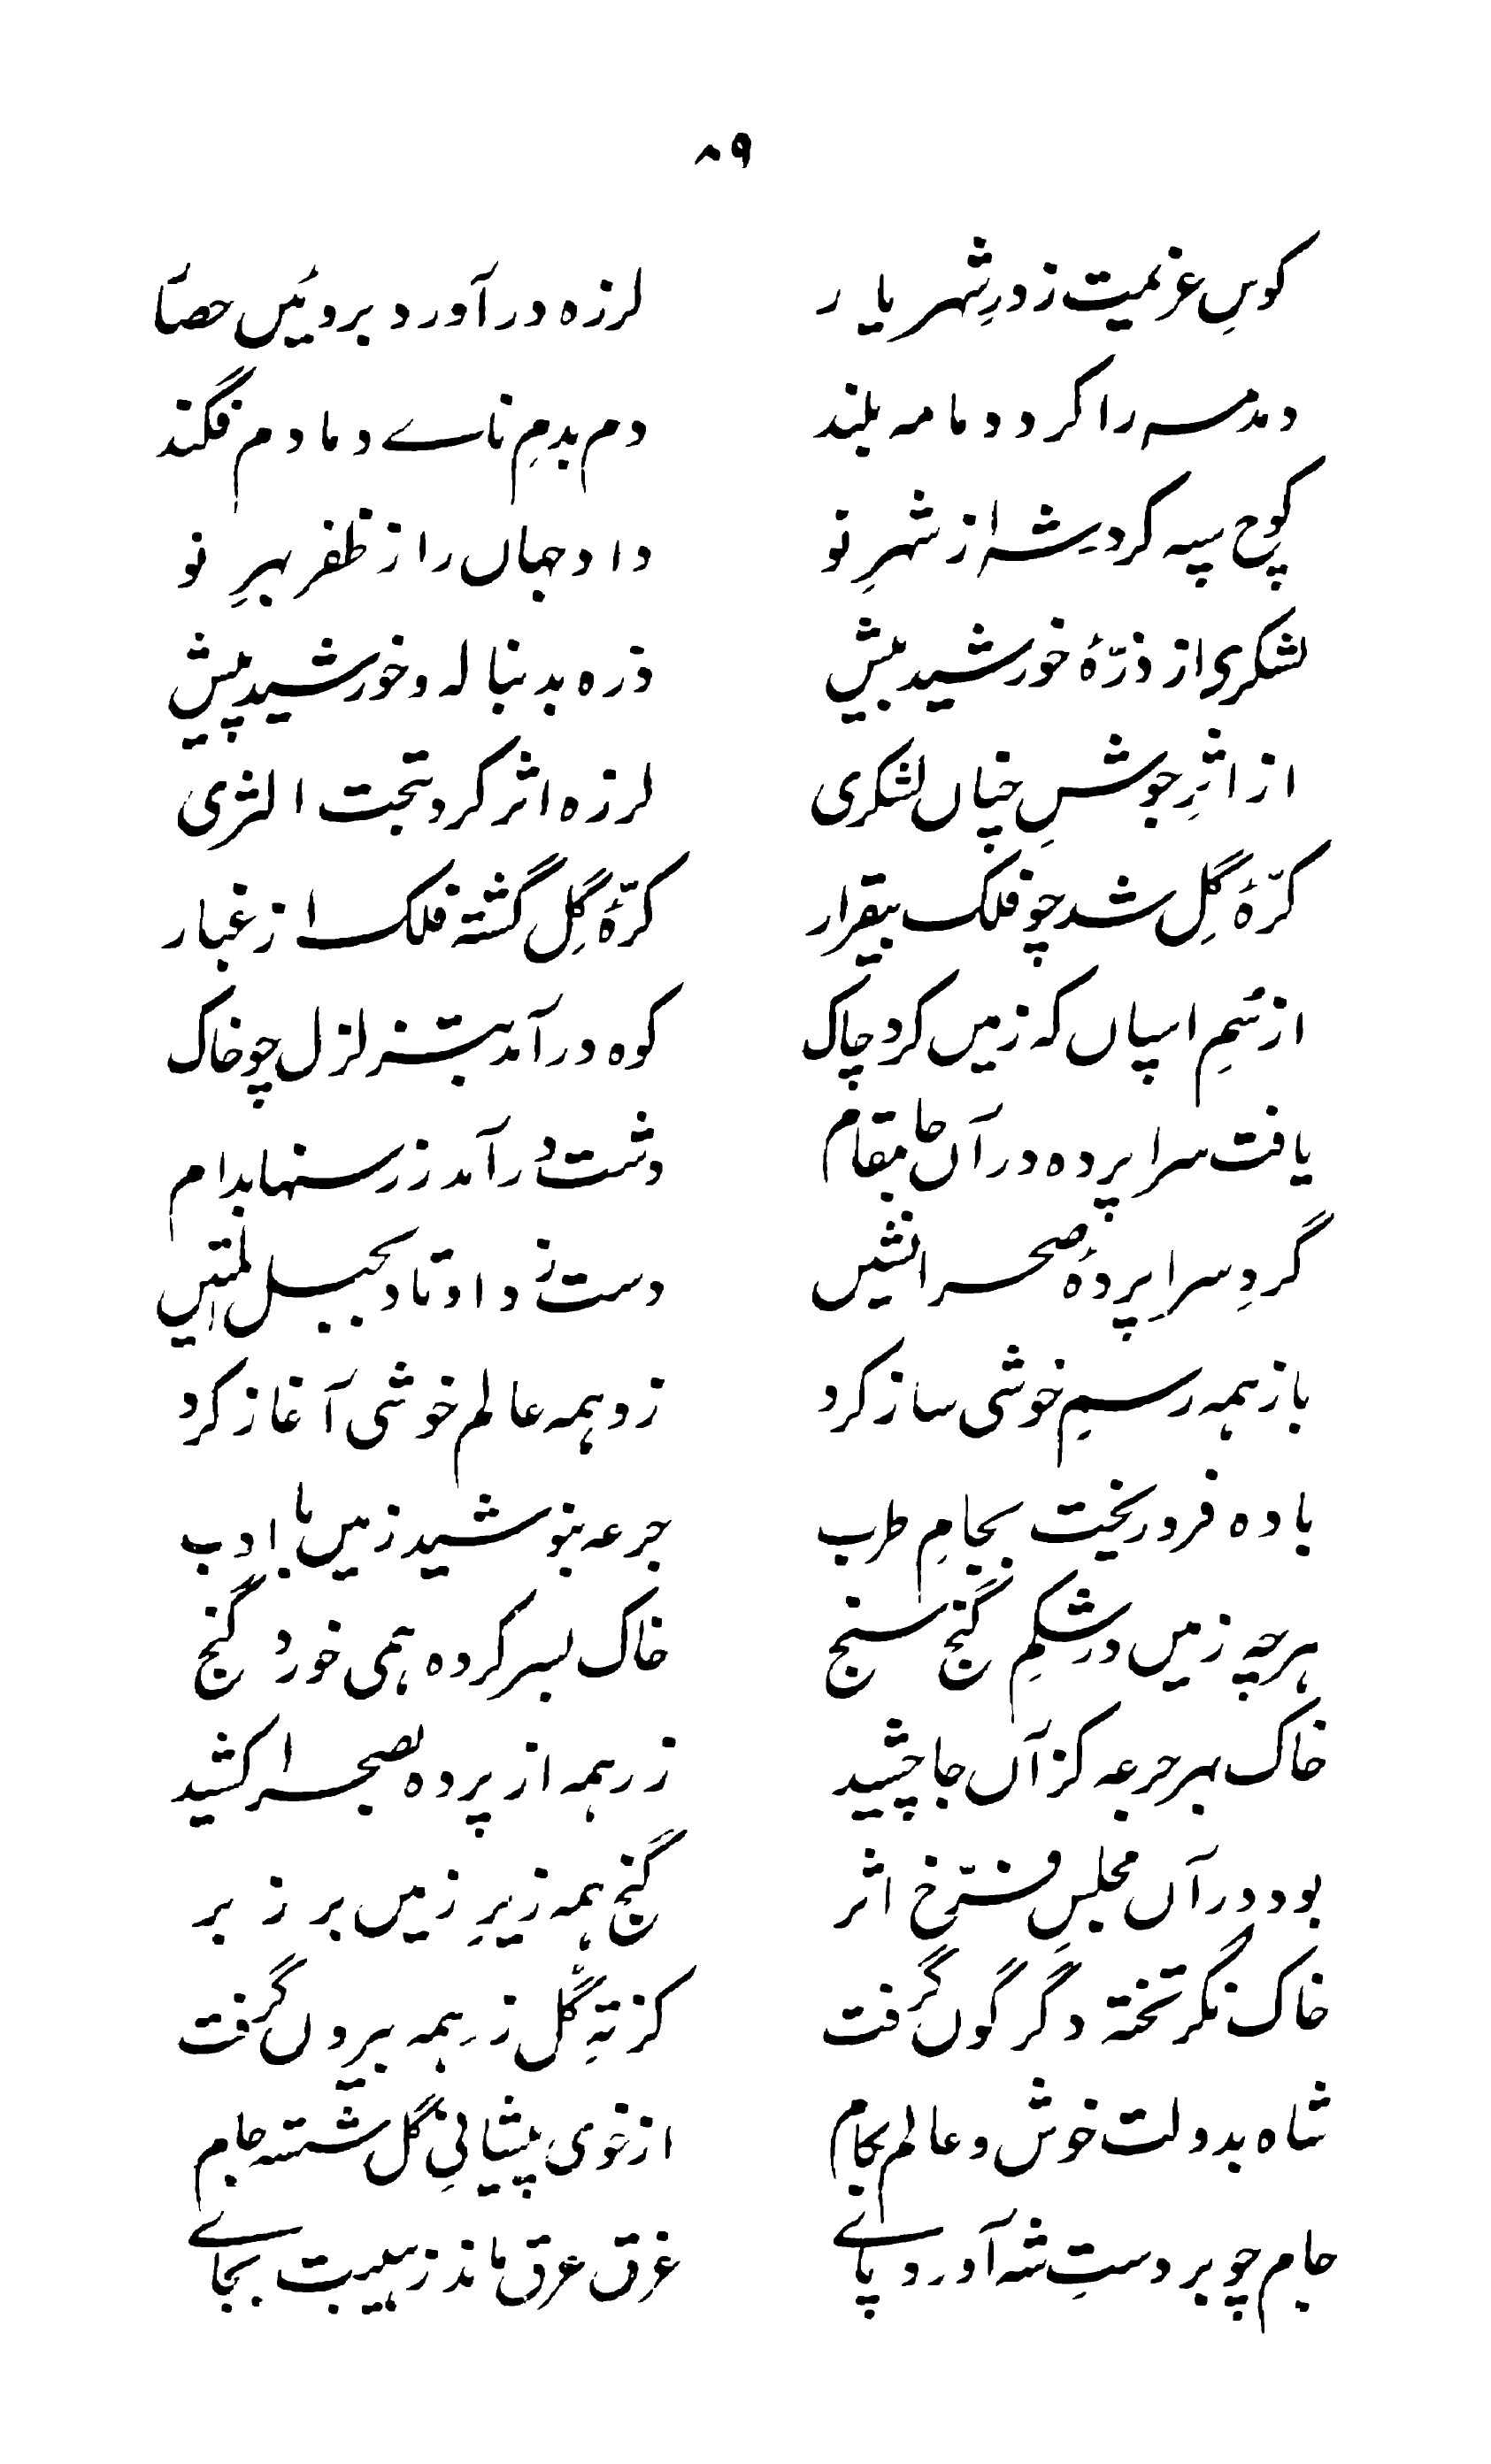 ۸۹
کوسِ عزیمت ز درِ شہریار لرزہ در آورد بروئیں حصار
دمدمہ را کرد دمامہ بلند دم بدمِ ناے دمادم فگند
کوچ سپہ کرد شہ از شہرِ نو داد جہاں را ز ظفر بہرِ نو
لشکری از ذرّۂ خورشید بیش ذرہ بدنبالہ و خورشید پیش
از اثرِ جوششِ چناں لشکری لرزہ اثر کرد تحت الثری
کرّۂ گِل شد چو فلک بیقرار کرّۂ گِل گشتہ فلک از غبار
از سُمِ اسپاں کہ زمیں کرد چاک کوہ در آمد بتزلزل چو خاک
یافت سراپردہ در آں جا مقام دشت در آمد ز رسنہا بدام
گردِ سراپردۂ صحرا نشیں دست زد اوتاد بحبل المتیں
باز ہمہ رسمِ خوشی ساز کرد زو ہمہ عالم خوشی آغاز کرد
بادہ فرو ریخت بجامِ طرب جرعہ بنوشید زمیں با ادب
ہرچہ زمیں در شکمِ گنج سنج خاک بسر کردہ ہمی خورد گنج
خاک بہر جرعہ کز آں جا چشید زر ہمہ از پردہ بصحرا کشید
بود در آں مجلسِ فرّخ اثر گنج ہمہ زیرِ زمیں بر زبر
خاک نگر تختہ دگرگوں گرفت کز تہِ گِل زر ہمہ بیروں گرفت
شاہ بدولت خوش و عالم بکام از خوی پیشانیِ گل شستہ جام
جام چو بر دستِ شہ آورد پاے غرق عرق ماند ز ہیبت بجاے